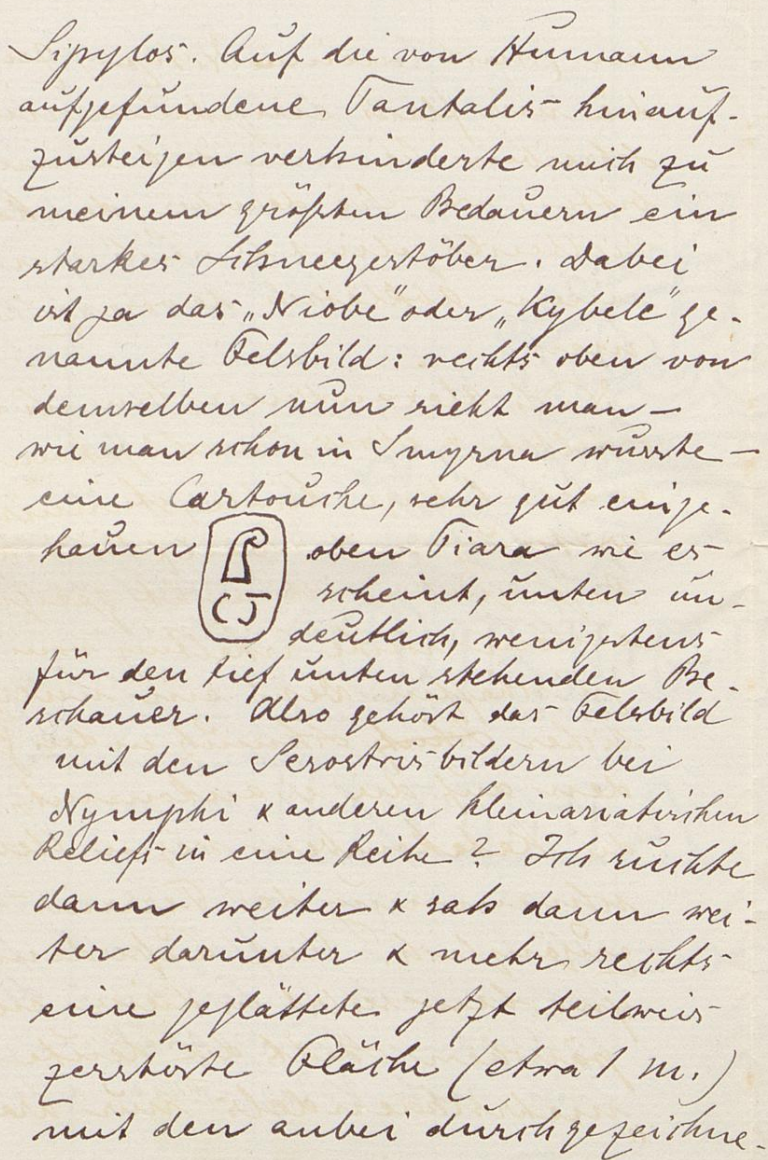 Sipylos. Auf die von Humann
aufgefundene Tantalis hinauf-
zusteigen verhinderte mich zu
meinem größten Bedauern ein
starkes Schneegestöber. Dabei
ist ja das „Niobe" oder „Kybele" ge-
nannte Felsbild: rechts oben von
demselben nun sieht man –
wie man schon in Smyrna wusste –
eine Cartouche, sehr gut einge-
hauen oben Tiara wie es
scheint, unten un-
deutlich, wenigstens
für den tief unten stehenden Be-
schauer. Also gehört das Felsbild
mit den Sesostrisbildern bei
Nymphi & anderen kleinasiatischen
Reliefs in eine Reihe? Ich suchte
dann weiter & sah dann wei-
ter darunter & mehr rechts
eine geglättete jetzt teilweis
zerstörte Fläche (etwa 1 m.)
mit den anbei durchgezeichne-